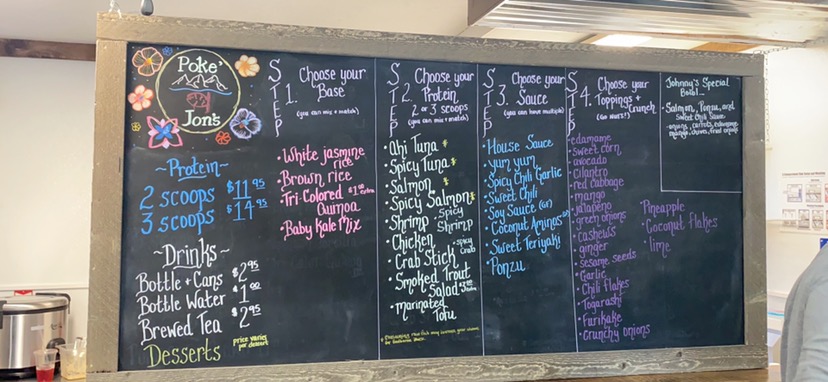 Poke'
Jon's
~Protein~
2 scoops $11.95
3 scoops $14.95
~Drinks~
Bottle + Cans $2.95
Bottle Water $1.00
Brewed Tea $2.95
Desserts price varies
per dessert
STEP 1. Choose your
Base
(you can mix + match)
• White jasmine
rice
• Brown rice
• Tri-Colored $1.00 extra
Quinoa
• Baby Kale Mix
STEP 2. Choose your
Protein
2 or 3 scoops
(you can mix + match)
• Ahi Tuna *
• Spicy Tuna *
• Salmon *
• Spicy Salmon *
• Shrimp • Spicy
Shrimp
• Chicken
• Crab Stick • Spicy
Crab
• Smoked Trout
Salad extra
• marinated
Tofu
STEP 3. Choose your
Sauce
(you can have multiple)
• House Sauce
• yum yum
• Spicy Chili Garlic
• Sweet Chili
• Soy Sauce (GF)
• Coconut Aminos
• Sweet Teriyaki
• Ponzu
STEP 4. Choose your
Toppings +
Crunch
(Go Nuts!!)
• edamame
• sweet corn
• avocado
• cilantro
• red cabbage
• mango
• jalapeño
• green onions
• cashews
• ginger
• sesame seeds
• Garlic
• Chili flakes
• Togarashi
• Furikake
• Crunchy onions
• Pineapple
• Coconut flakes
• lime
Johnny's Special
Bowl...
• Salmon, Ponzu, and
Sweet Chili Sauce
• onions, carrots, edamame
mango, chives, fried onions